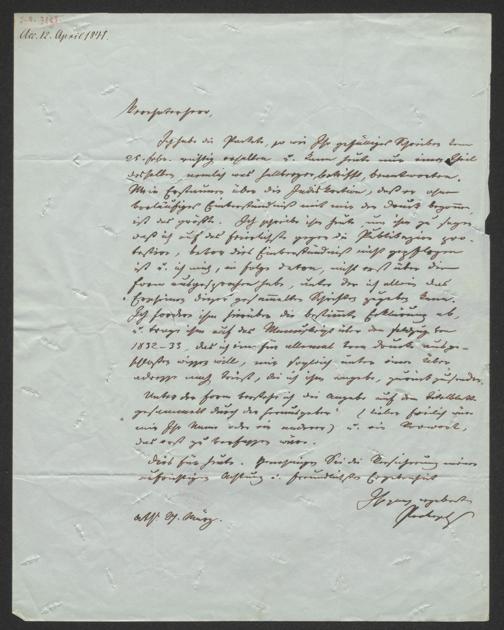 Acc. 12. April 1841.
Verehrter Herr,
Ich habe die Pakete, so wie Ihr gefälliges Schreiben vom
25. Febr. richtig erhalten u. kann heute nur einen Theil
desselben, nemlich was Hallberger betrifft, beantworten.
Mein Erstaunen über die Indiskretion, daß er ohne
vorläufiges Einverständniß mit mir den Druck begonnen,
ist das größte. Ich schreibe ihm heute um ihm zu sagen
daß ich auf das feierlichste gegen die Publikazion pro-
testire, bevor dies Einverständniß nicht gepflogen
ist u. ich mich, in Folge davon, nicht erst über die
Form ausgesprochen habe, unter der ich allein das
Erscheinen dieser gesammelten Schriften zugeben kann.
Ich fordere ihm hierüber die bestimmte Erklärung ab,
u. trage ihm auf das Manuskript über den Feldzug von
1832-33, das ich ein für allemal vom Drucke ausge-
schlossen wissen will, mir sogleich unter einer Über-
adresse nach Triest, die ich ihm angebe, zurückzusenden.
Unter der Form verstehe ich die Angabe auf dem Titelblatte
gesammelt durch den Herausgeber (lieber freilich wäre
mir Ihr Name oder ein anderer) u. ein Vorwort,
das erst zu verfassen wäre.
Dies für heute. Genehmigen Sie die Versicherung meiner
aufrichtigen Achtung u. freundlichsten Ergebenheit
Ihr ganz ergebenster
Prokesch
Ath. 27. März.